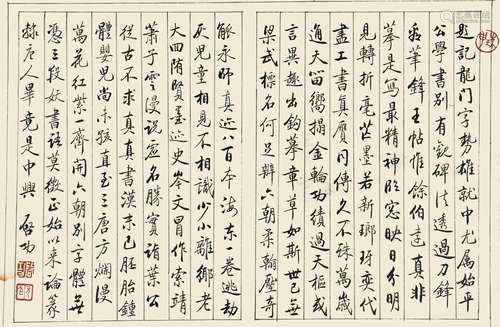 题記龍門字勢雄就中尤属始平
公學書别有觀碑法透過刀鋒
看筆鋒王帖惟餘伯遠真非
摹是寫最精神臨窓映日分明
見轉折毫芒墨若新瑯琊奕代
盡工書真贋同傳久不殊萬歲
通天留嚮搨金輪功績過天樞或
言異趣出鈎摹章草如斯世已無
梁武標名何足辨六朝柔翰壓奇
觚永師真迹八百本海東一卷逃劫
灰兒童相見不相識少小離鄉老
大回隋賢墨迹史岑文冒作索靖
蕭子雲漫說虛名勝實詣葉公
從古不求真真書漢末已胚胎鍾
體嬰兒尚未孩直至三唐方爛漫
萬花紅紫一齊開六朝别字體無
憑三段妖書語莫徵正始以來論篆
隸唐人畢竟是中興啟功